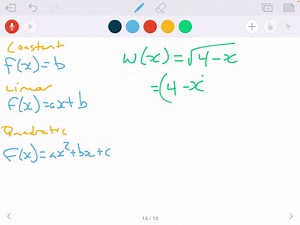 Constant
f(x)=b
Linear
f(x)=ax+b
Quadratic
f(x)=ax²+bx+c
w(x)=√4-x
=(4-x
14 / 14